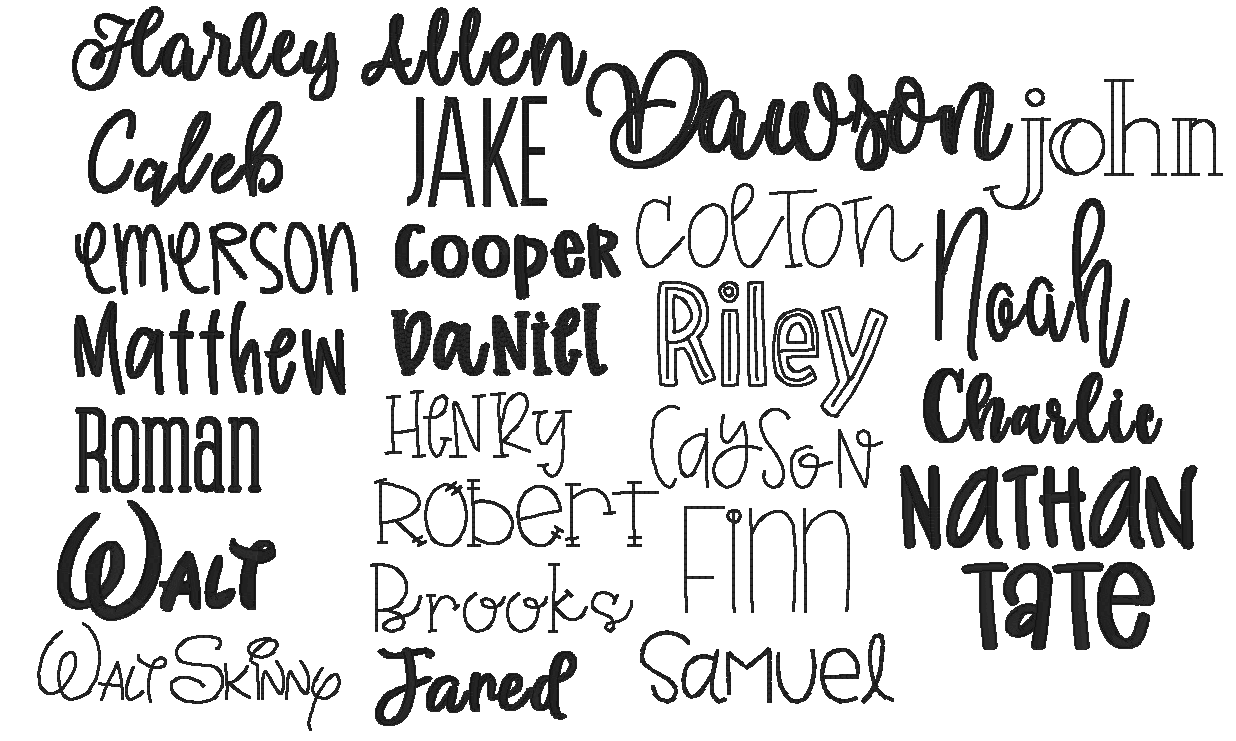 Harley
Caleb
emerson
Matthew
Roman
Walt
Walt Skinny
Allen
JAKE
Cooper
Daniel
Henry
Robert
Brooks
Jared
Dawson
Colton
Riley
Cayson
Finn
Samuel
john
Noah
Charlie
NATHAN
TaTe